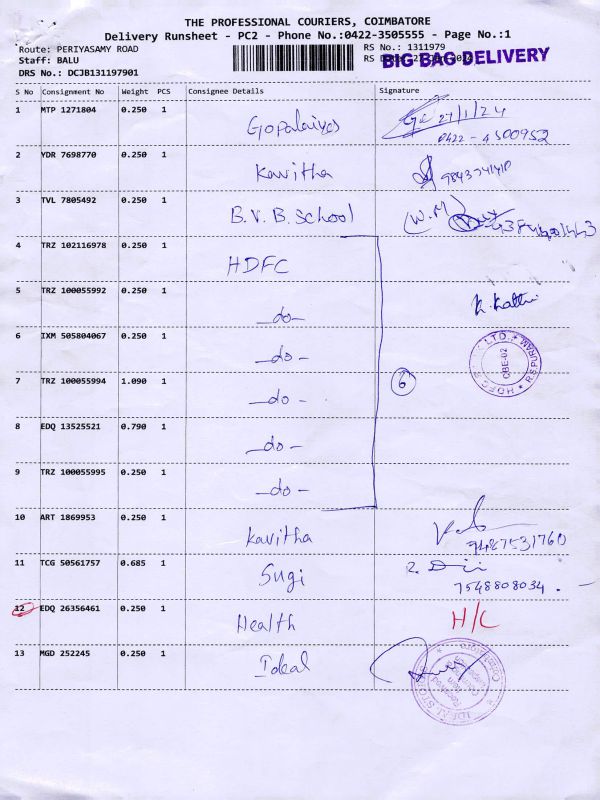 THE PROFESSIONAL COURIERS, COIMBATORE
Delivery Runsheet - PC2 - Phone No.:0422-3505555 - Page No.:1
Route: PERIYASAMY ROAD
RS No.: 1311979
Staff: BALU
RS
BIG BAG DELIVERY
DRS No.: DCJB131197901
S No Consignment No Weight PCS Consignee Details Signature
1 MTP 1271804 0.250 1 27/1/24
0422 - 4500952
2 YDR 7698770 0.250 1 Kavitha 9843741410
3 TVL 7805492 0.250 1 B.V.B.School (W.M)
4 TRZ 102116978 0.250 1 HDFC
5 TRZ 100055992 0.250 1 -do-
6 IXM 505804067 0.250 1 -do-
HDFC LTD. * R.S PURAM *
CBE-02
7 TRZ 100055994 1.090 1 -do- 6
8 EDQ 13525521 0.790 1 -do-
9 TRZ 100055995 0.250 1 -do-
10 ART 1869953 0.250 1 Kavitha
9487531760
11 TCG 50561757 0.685 1 Sugi
7548808034.
12 EDQ 26356461 0.250 1 Health H/C
13 MGD 252245 0.250 1 Ideal